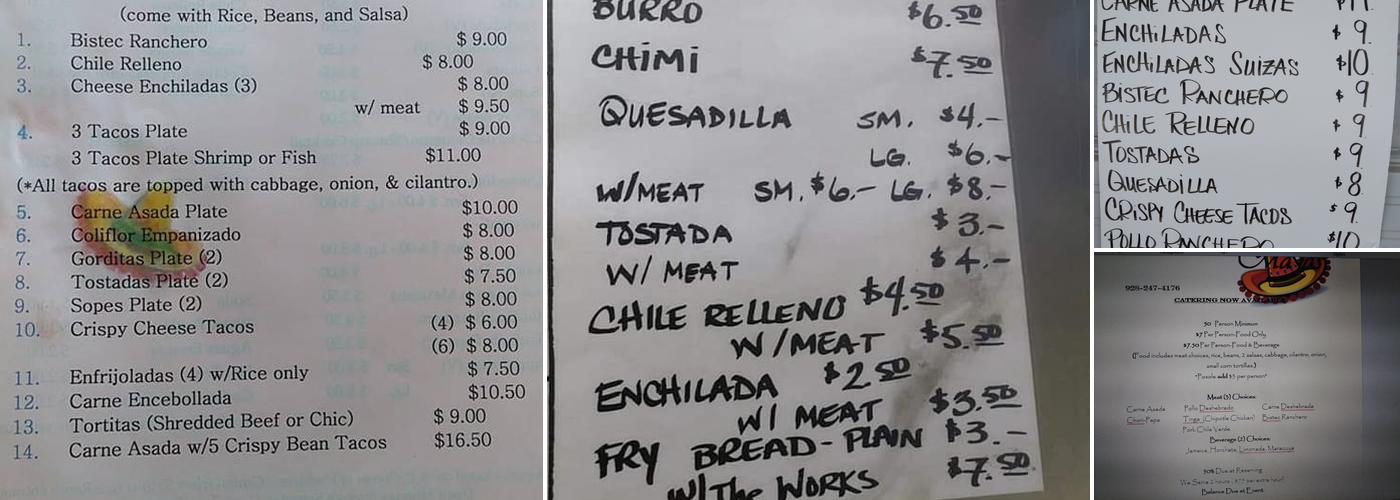 (come with Rice, Beans, and Salsa)
1. Bistec Ranchero $ 9.00
2. Chile Relleno $ 8.00
3. Cheese Enchiladas (3) $ 8.00
w/ meat $ 9.50
4. 3 Tacos Plate $ 9.00
3 Tacos Plate Shrimp or Fish $11.00
(*All tacos are topped with cabbage, onion, & cilantro.)
5. Carne Asada Plate $10.00
6. Coliflor Empanizado $ 8.00
7. Gorditas Plate (2) $ 8.00
8. Tostadas Plate (2) $ 7.50
9. Sopes Plate (2) $ 8.00
10. Crispy Cheese Tacos (4) $ 6.00
(6) $ 8.00
11. Enfrijoladas (4) w/Rice only $ 7.50
12. Carne Encebollada $10.50
13. Tortitas (Shredded Beef or Chic) $ 9.00
14. Carne Asada w/5 Crispy Bean Tacos $16.50
BURRO $6.50
CHIMI $7.50
QUESADILLA SM. $4.-
LG. $6.-
W/MEAT SM. $6.- LG. $8.-
TOSTADA $3.-
W/ MEAT $4.-
CHILE RELLENO $4.50
W/MEAT $5.50
ENCHILADA $2.50
W/ MEAT $3.50
FRY BREAD-PLAIN $3.-
W/The WORKS $7.50
CARNE ASADA PLATE $11
ENCHILADAS $ 9
ENCHILADAS SUIZAS $10
BISTEC RANCHERO $ 9
CHILE RELLENO $ 9
TOSTADAS $ 9
QUESADILLA $ 8
CRISPY CHEESE TACOS $ 9
POLLO RANCHERO $10
928-247-4176
CATERING NOW
30 Person Minimum
$7 Per Person-Food Only
$7.50 Per Person-Food & Beverage
(Food includes meat choices, rice, beans, 2 salsas, cabbage, cilantro, onion,
small corn tortillas.)
*Posole add $3 per person*
Meat (3) Choices:
Carne Asada Pollo Deshebrado Carne Deshebrada
Tinga (Chipotle Chicken) Bistec Ranchero
Pork Chile Verde
Beverage (2) Choices:
Jamaica, Horchata, Limonada, Maracuya
50% Due at Reserving
Balance Due at Event